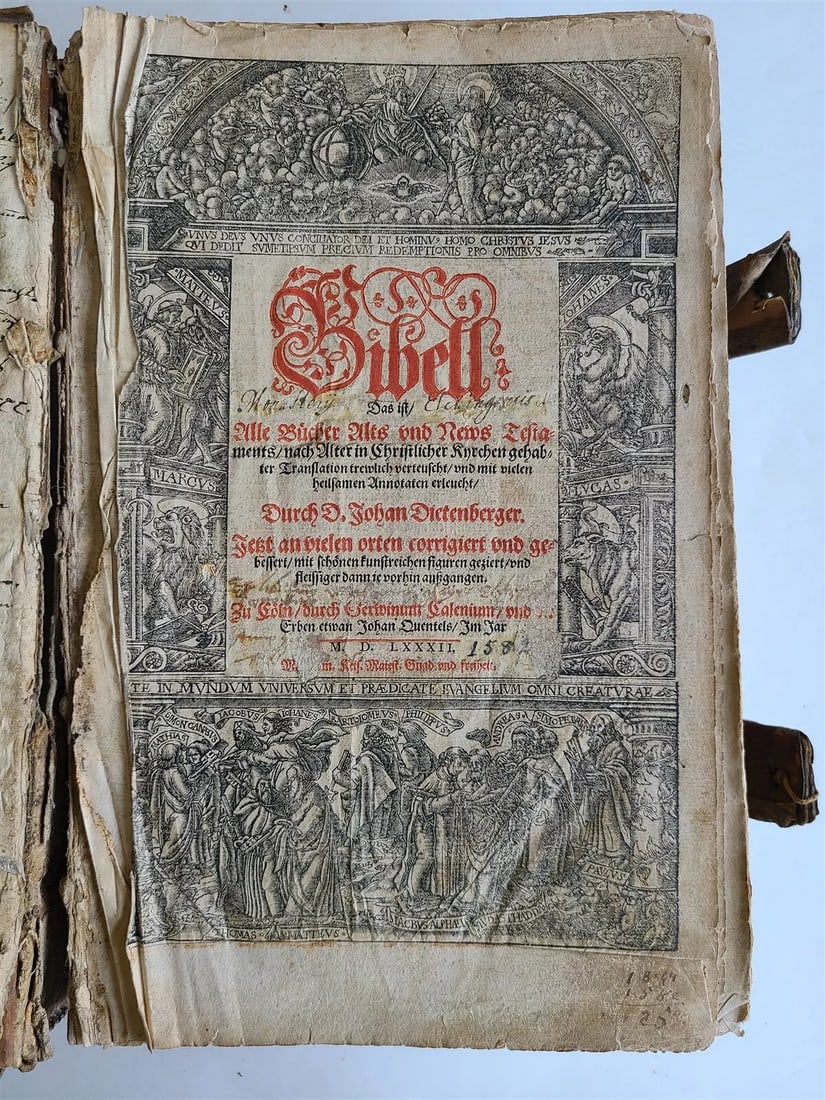 VNVS DEVS VNVS CONCILIATOR DEI ET HOMINVS HOMO CHRISTVS IESVS
QVI DEDIT SVMETIPSVM PRECIVM REDEMPTIONIS PRO OMNIBVS
MATTEVS
IOHANES
Bibell
Das ist/
Alle Bücher Alts vnd News Testa-
ments/nach Alter in Christlicher Kyrchen gehab-
ter Translation trewlich verteuscht/vnd mit vielen
heilsamen Annotaten erleucht/
MARCVS
LVCAS
Durch D. Johan Dietenberger.
Jetzt an vielen orten corrigiert vnd ge-
bessert/mit schönen kunstreichen figuren geziert/vnd
fleissiger dann ie vorhin außgangen.
Zu Cöln/durch Gerwinum Calenium/vnd
Erben etwan Johan Quentels/Im Jar
M. D. LXXXII. 1582
Keis. Maiest. Gnad. vnd freiheit.
TE IN MVNDVM VNIVERSVM ET PRÆDICATE EVANGELIVM OMNI CREATVRAE
IACOBVS IOHANES BARTOLOMEVS PHILIPPVS ANDREAS SIMO PETRVS
MATHIAS
PAVLVS
IACOBVS ALPHAEI
THOMAS MATTEVS
1582
25